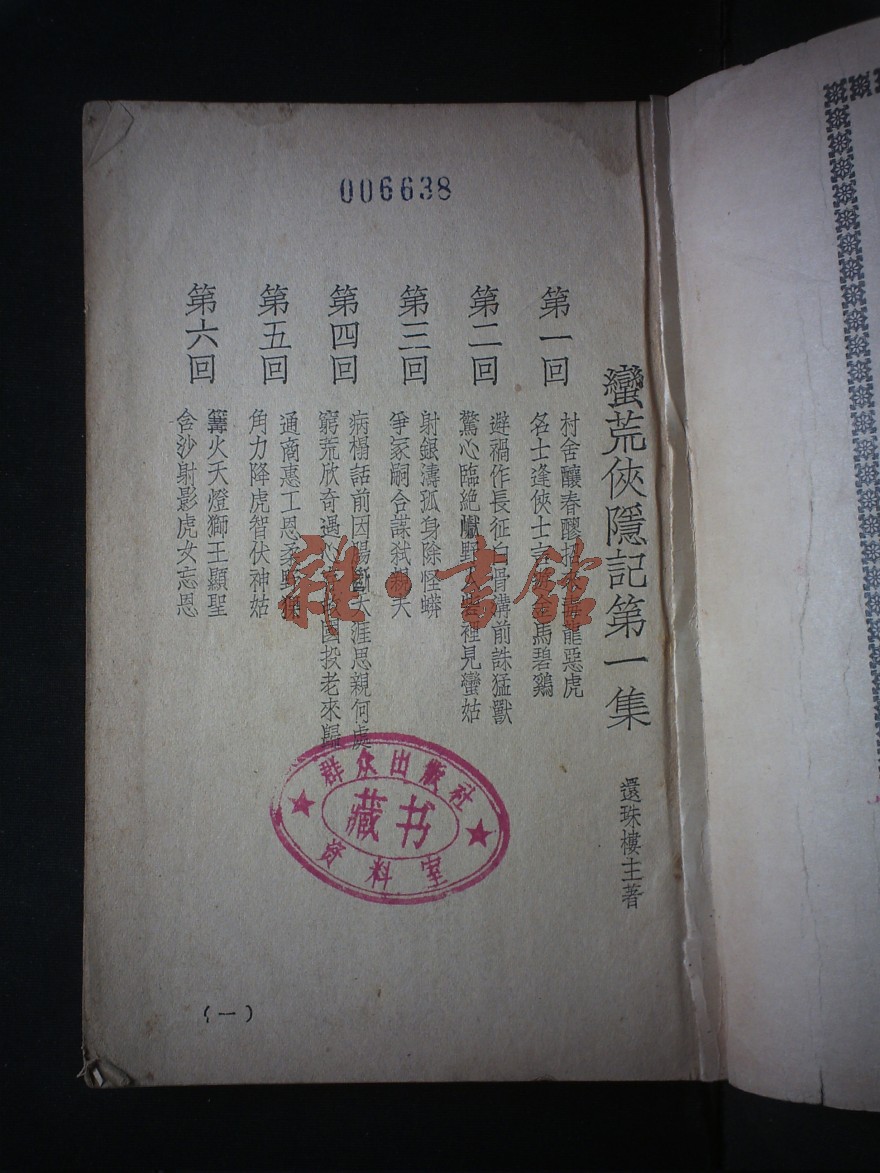 006638
蠻荒俠隱記第一集
還珠樓主著
第一回
村舍釀春醪 龍惡虎
名士逢俠士 馬碧鷄
第二回
避禍作長征白骨溝前誅猛獸
驚心臨絶巘野 裡見蠻姑
第三回
射銀濤孤身除怪蟒
爭冢嗣合謀弒 夫
第四回
病榻話前因腸斷天涯思親何處
窮荒欣奇遇心 故國投老來歸
第五回
通商惠工恩柔野猓
角力降虎智伏神姑
第六回
篝火天燈獅王顯聖
含沙射影虎女忘恩
(一)
群众出版社
藏书
资料室
雜·書館